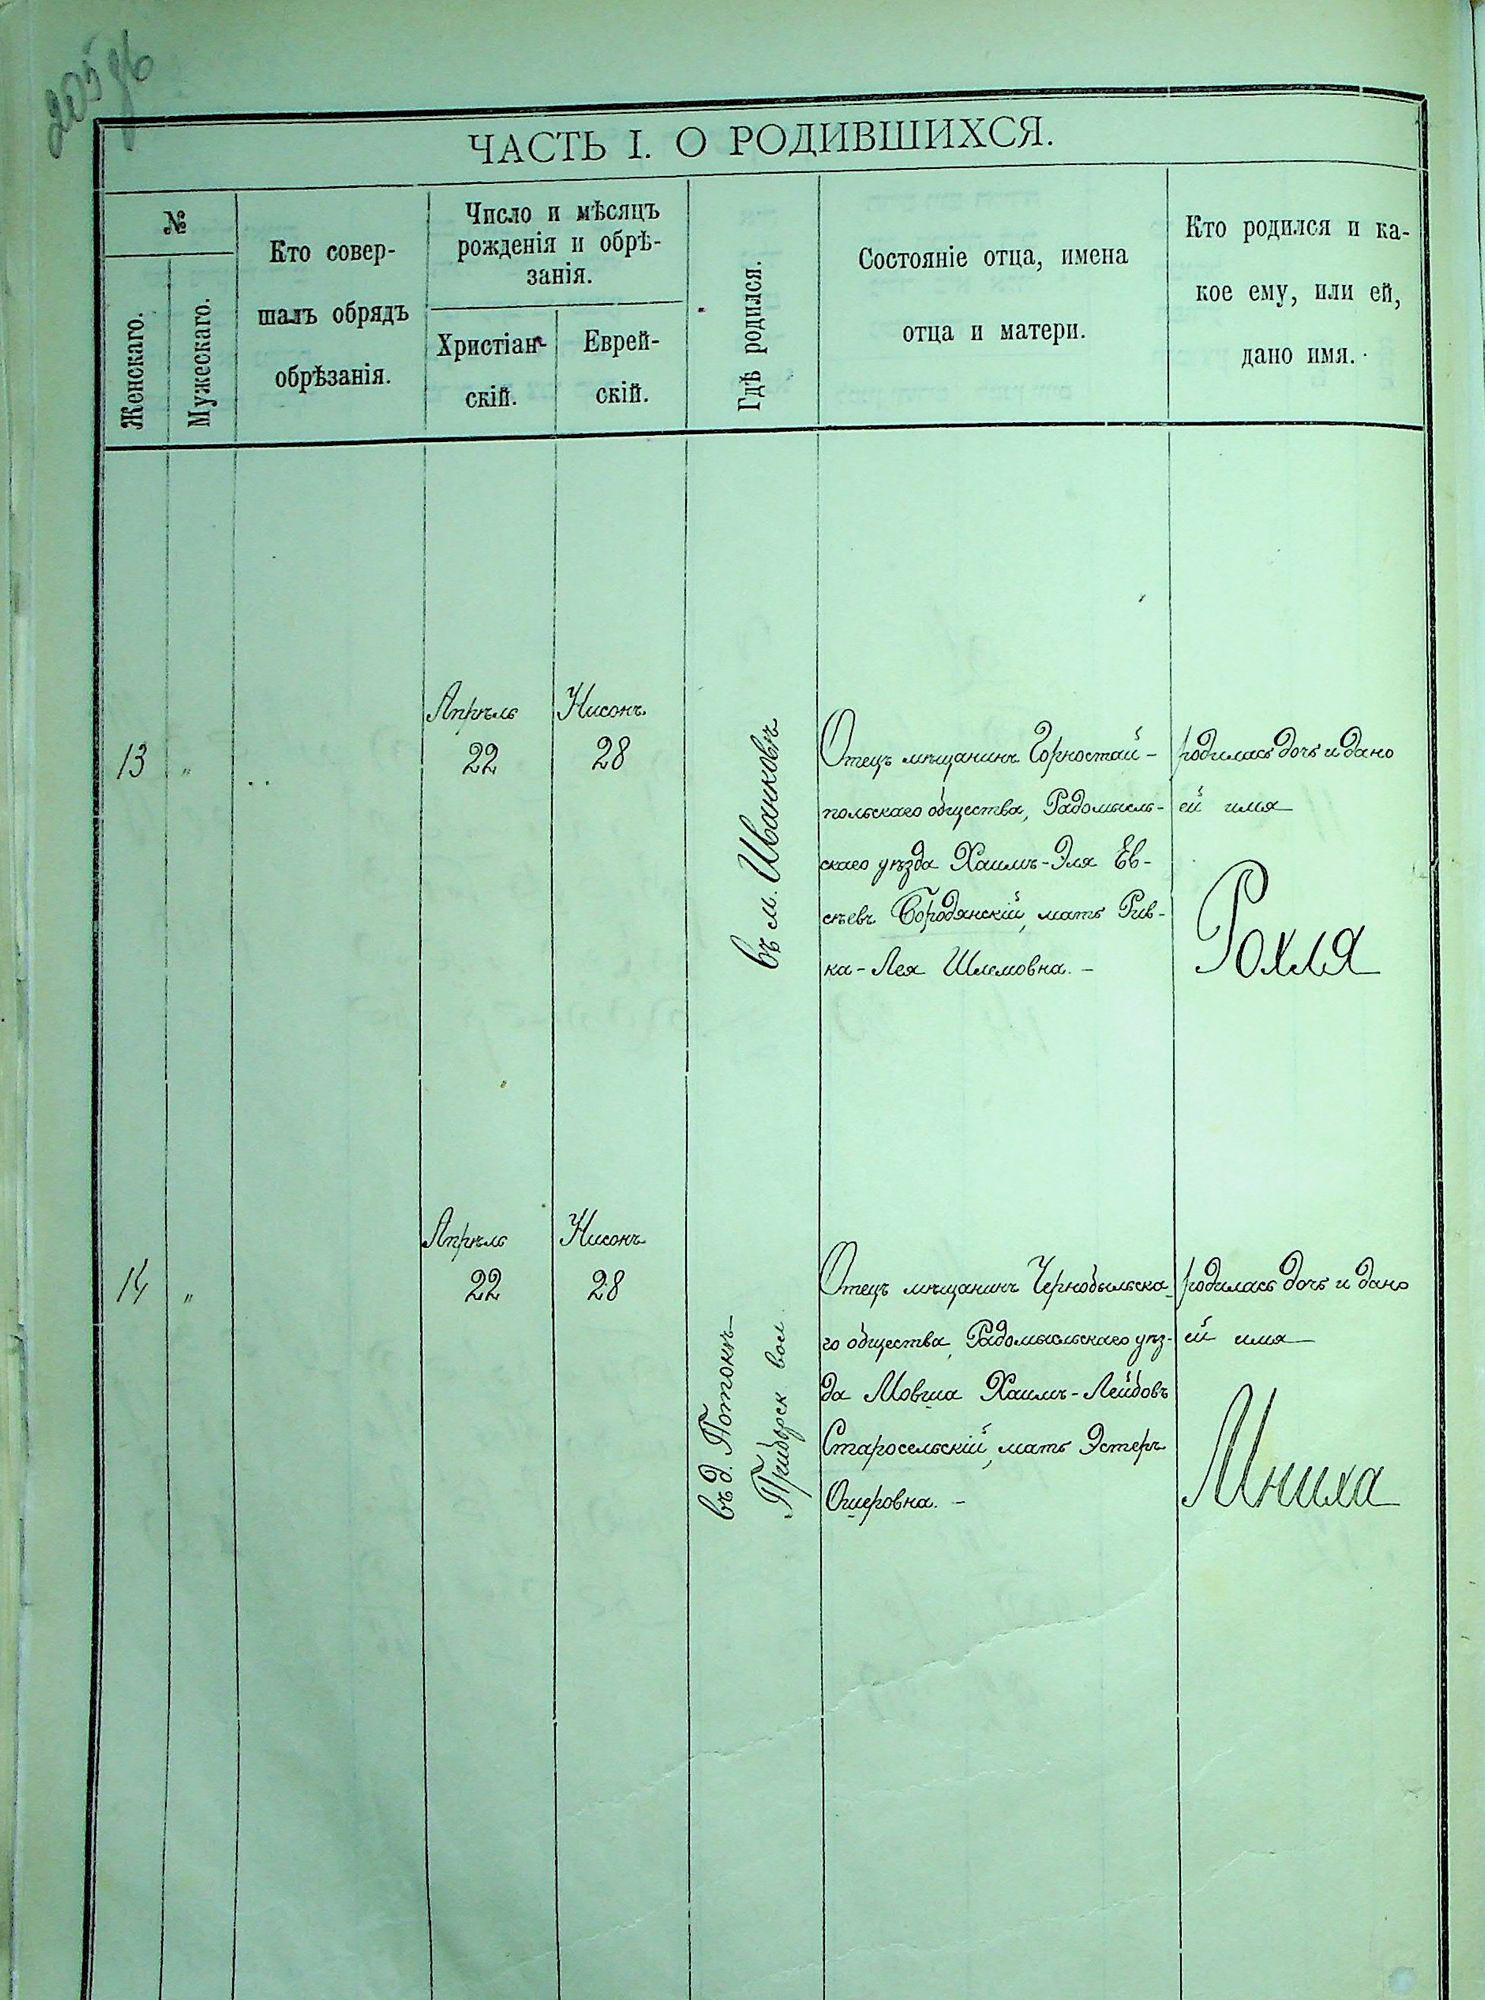 205 об
ЧАСТЬ I. О РОДИВШИХСЯ.
№
Женскаго.
Мужескаго.
Кто совер-
шалъ обрядъ
обрѣзанія.
Число и мѣсяцъ
рожденія и обрѣ-
занія.
Христіан-
скій.
Еврей-
скій.
Гдѣ родился.
Состояніе отца, имена
отца и матери.
Кто родился и ка-
кое ему, или ей,
дано имя.
13
"
Апрѣль
22
Нисонъ
28
въ м. Иванковъ
Отецъ мѣщанинъ Горностай-
польскаго общества, Радомысль-
скаго уѣзда Хаимъ-Эля Ев-
сѣевъ Бородянскій, мать Рив-
ка-Лея Шлемовна. -
родилась дочь и дано
ей имя
Рохля
14
"
Апрѣль
22
Нисонъ
28
въ д. Потокъ
Приборск вол.
Отецъ мѣщанинъ Чернобыльска-
го общества, Радомысльскаго уѣз-
да Мовша Хаимъ-Лейбовъ
Старосельскій, мать Эстеръ
Ошеровна. -
родилась дочь и дано
ей имя
Мниха